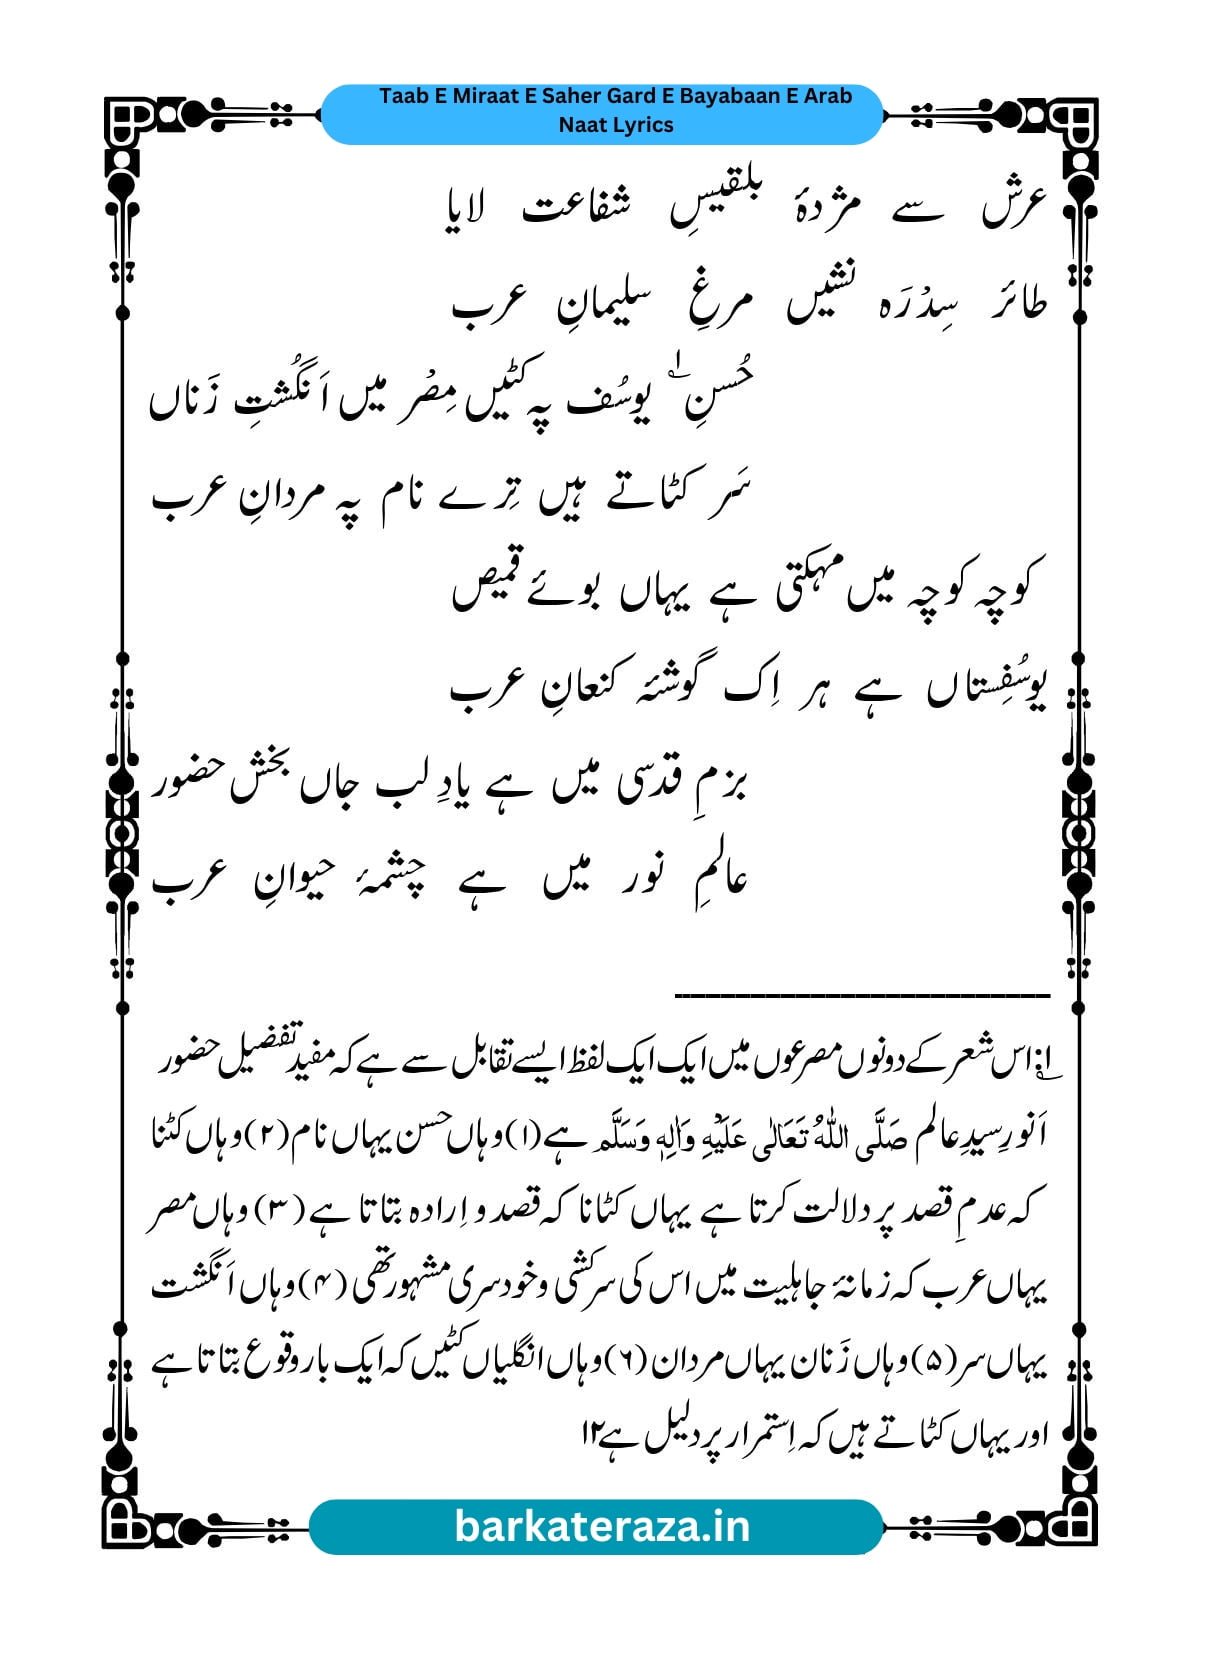 Taab E Miraat E Saher Gard E Bayabaan E Arab
Naat Lyrics
عرش سے مژدۂ بلقیسِ شفاعت لایا
طائر سِدْرَہ نشیں مرغِ سلیمانِ عرب
حُسنِ ۱؎ یوسُف پہ کٹیں مِصْر میں اَنگُشتِ زَناں
سَر کٹاتے ہیں تِرے نام پہ مردانِ عرب
کوچہ کوچہ میں مہکتی ہے یہاں بوئے قمیص
یوسُفِستاں ہے ہر اِک گوشۂ کنعانِ عرب
بزمِ قدسی میں ہے یادِ لب جاں بخش حضور
عالمِ نور میں ہے چشمۂ حیوانِ عرب
۱؎: اس شعر کے دونوں مصرعوں میں ایک ایک لفظ ایسے تقابل سے ہے کہ مفید تفضیل حضور
اَنورِ سیدِ عالم صَلَّی اللّٰہُ تَعَالٰی عَلَیْہِ وَاٰلِہٖ وَسَلَّم ہے (۱) وہاں حسن یہاں نام (۲) وہاں کٹنا
کہ عدمِ قصد پر دلالت کرتا ہے یہاں کٹانا کہ قصد و اِرادہ بتاتا ہے (۳) وہاں مصر
یہاں عرب کہ زمانۂ جاہلیت میں اس کی سرکشی و خودسری مشہور تھی (۴) وہاں اَنگشت
یہاں سر (۵) وہاں زَنان یہاں مردان (۶) وہاں انگلیاں کٹیں کہ ایک بار وقوع بتاتا ہے
اور یہاں کٹاتے ہیں کہ اِستمرار پر دلیل ہے ۱۲
barkateraza.in